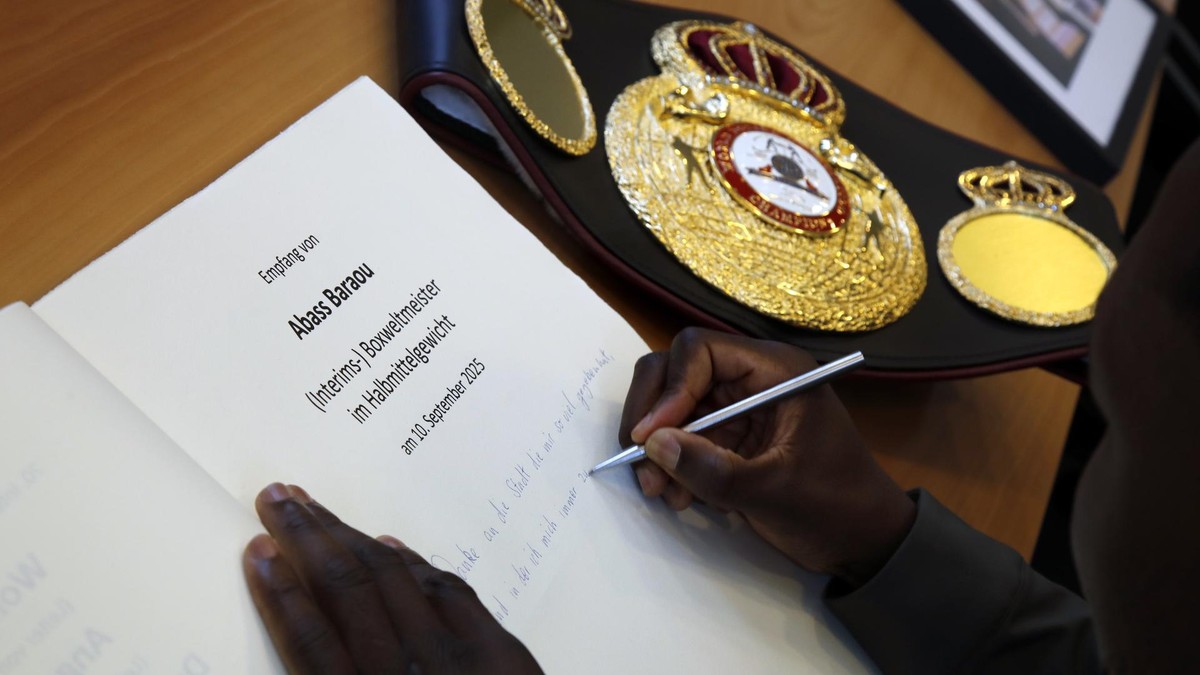 Empfang von
Abass Baraou
(Interims-) Boxweltmeister
im Halbmittelgewicht
am 10. September 2025
Danke an die Stadt die mir so viel gegeben hat,
und in der ich mich immer zu
CHAMPIONS